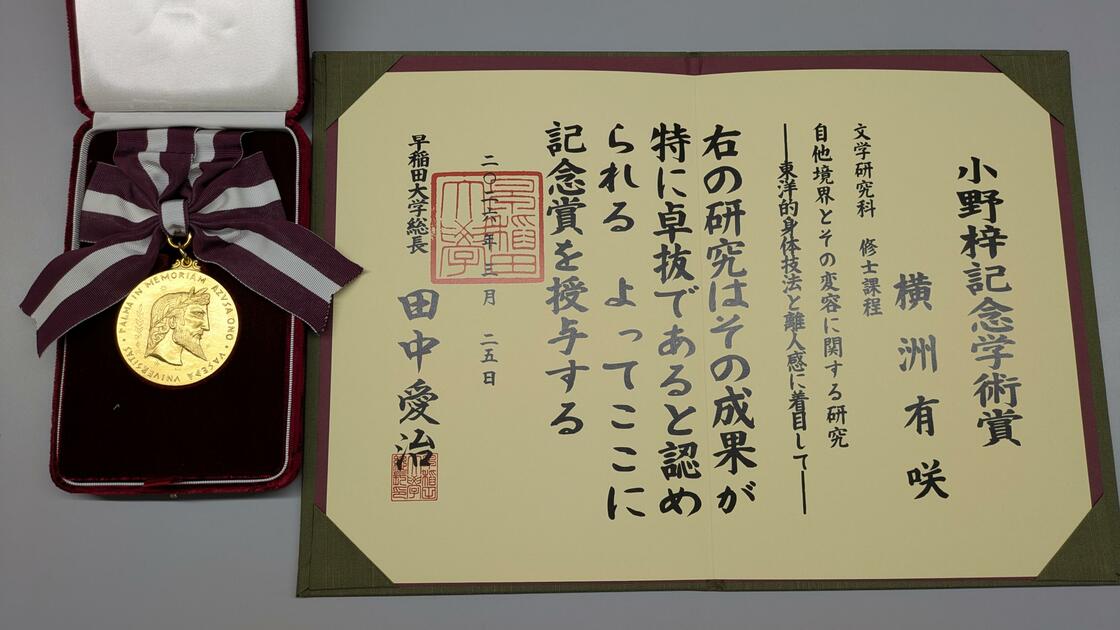 小野梓記念学術賞
横洲有咲
文学研究科 修士課程
自他境界とその変容に関する研究
―東洋的身体技法と離人感に着目して―
右の研究はその成果が
特に卓抜であると認め
られる よってここに
記念賞を授与する
二〇二六年三月二五日
早稲田大学総長
田中愛治
早稲田大学
PALMA IN MEMORIAM AZVSA ONO · VASEDA VNIVERSITAS ·